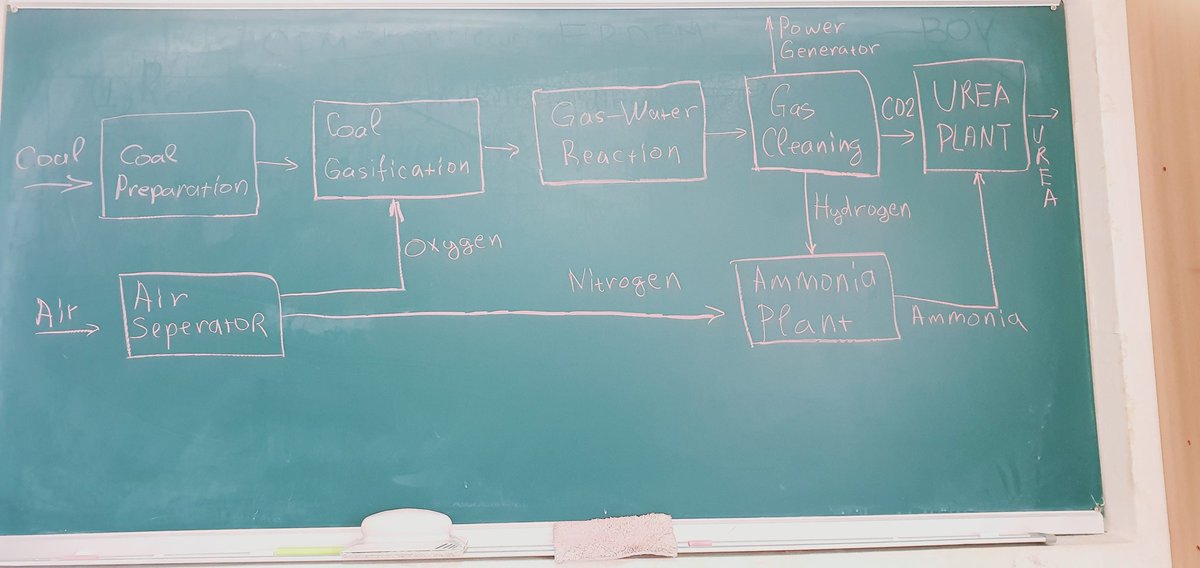 Power
Generator
Coal
Coal
Preparation
Coal
Gasification
Gas-Water
Reaction
Gas
Cleaning
CO2
UREA
PLANT
UREA
Oxygen
Hydrogen
Air
Air
SeperatoR
Nitrogen
Ammonia
Plant
Ammonia